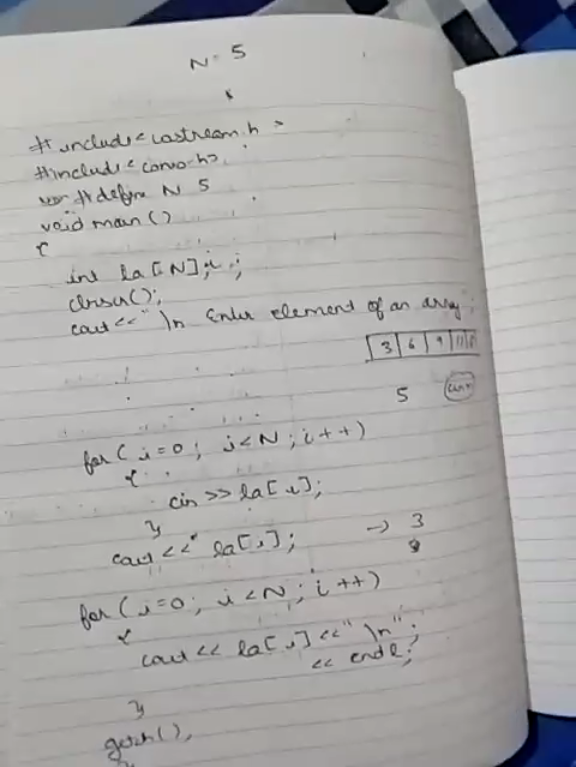 N = 5
#include<iostream.h>
#include<conio.h>
#define N 5
void main()
{
int la[N]; i;
clrscr();
cout<<"\n Enter element of an array;
3 6 9 11
5
for( i=0; i<N; i++)
{
cin >> la[i];
}
cout <<" la[i]; → 3
for(i=0; i<N; i++)
{
cout<< la[i] <<"\n";
<< endl;
}
getch();